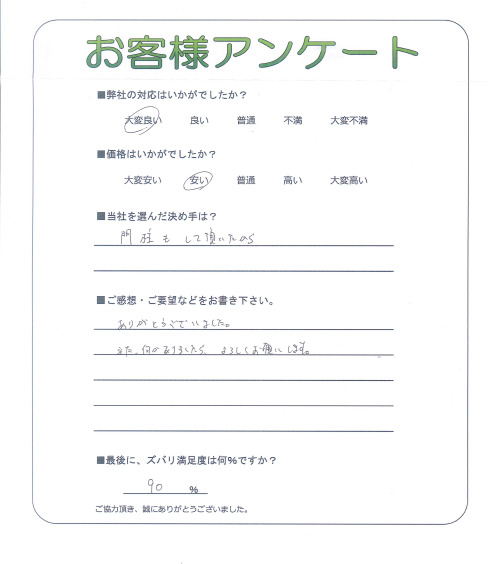 お客様アンケート
■弊社の対応はいかがでしたか？
大変良い 良い 普通 不満 大変不満
■価格はいかがでしたか？
大変安い 安い 普通 高い 大変高い
■当社を選んだ決め手は？
門柱もして頂いたから
■ご感想・ご要望などをお書き下さい。
ありがとうございました。
また、何かありましたら、よろしくお願いします。
■最後に、ズバリ満足度は何％ですか？
90 ％
ご協力頂き、誠にありがとうございました。